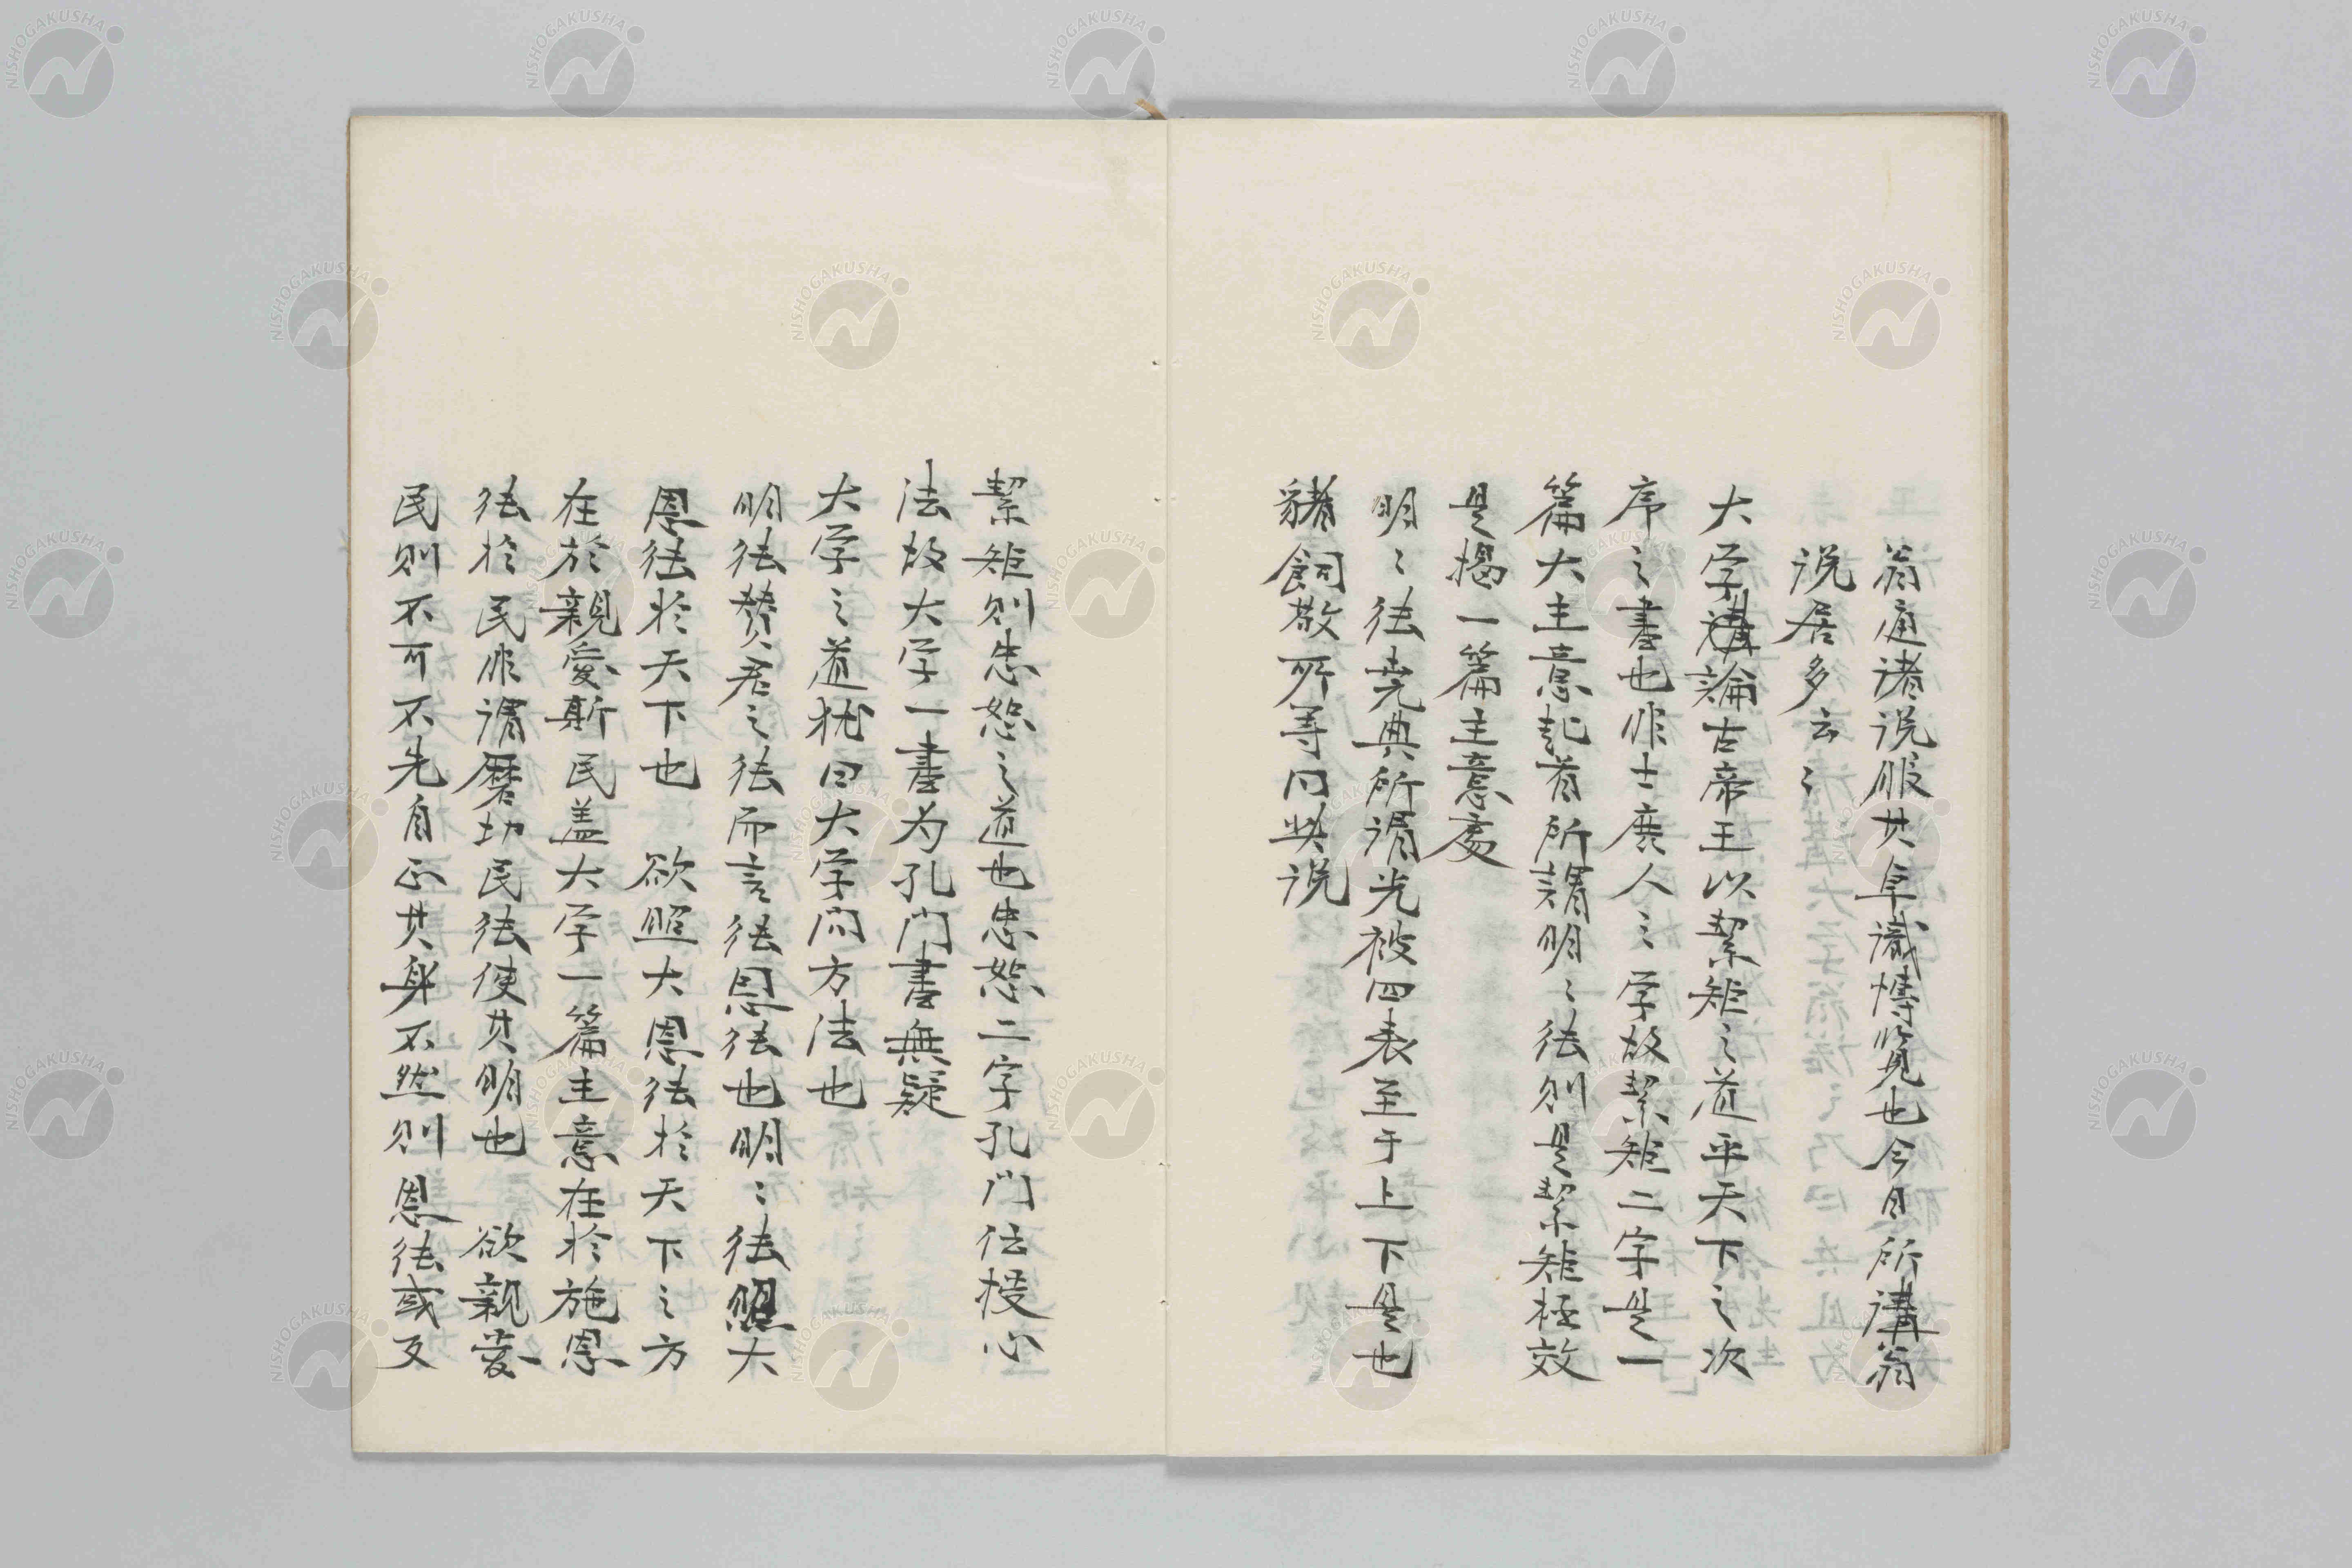 翁通诸说服其卓識博览也今日所講翁
说居多云〻
大学講論古帝王以絜矩之道平天下之次
序之書也非士庶人之学故絜矩二字是一
篇大主意起首所謂明〻徳則是絜矩極效
是揭一篇主意處
明〻徳堯典所谓光被四表至于上下是也
豬飼敬所等同其说
絜矩則忠恕之道也忠恕二字孔门伝授心
法故大学一書为孔门書無疑
大学之道犹曰大学问方法也
明徳赞君之徳而言徳恩徳也明〻徳照大
恩徳於天下也 欲照大恩徳於天下之方
在於親愛斯民盖大学一篇主意在於施恩
徳於民非谓磨切民徳使其明也 欲親愛
民則不可不先自正其身不然則恩徳或反
NISHOGAKUSHA